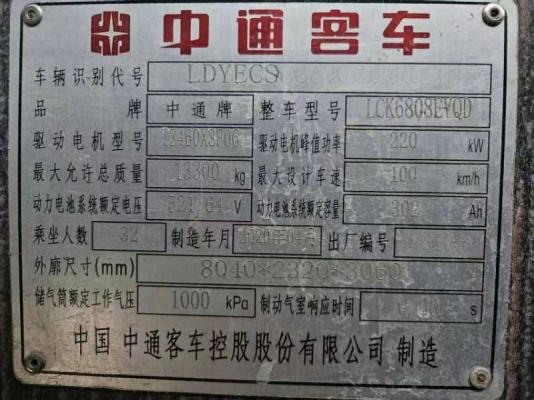 中通客车
车辆识别代号 LDYECS
品牌 中通牌 整车型号 LCK6808EVQD
驱动电机型号 TZ460XSF06 驱动电机峰值功率 220 kW
最大允许总质量 13300 kg 最大设计车速 100 km/h
动力电池系统额定电压 621.64 V 动力电池系统额定容量 302 Ah
乘坐人数 32 制造年月 2020年04月 出厂编号
外廓尺寸(mm) 8040*2320*3060
储气筒额定工作气压 1000 kPa 制动气室响应时间 s
中国 中通客车控股股份有限公司 制造